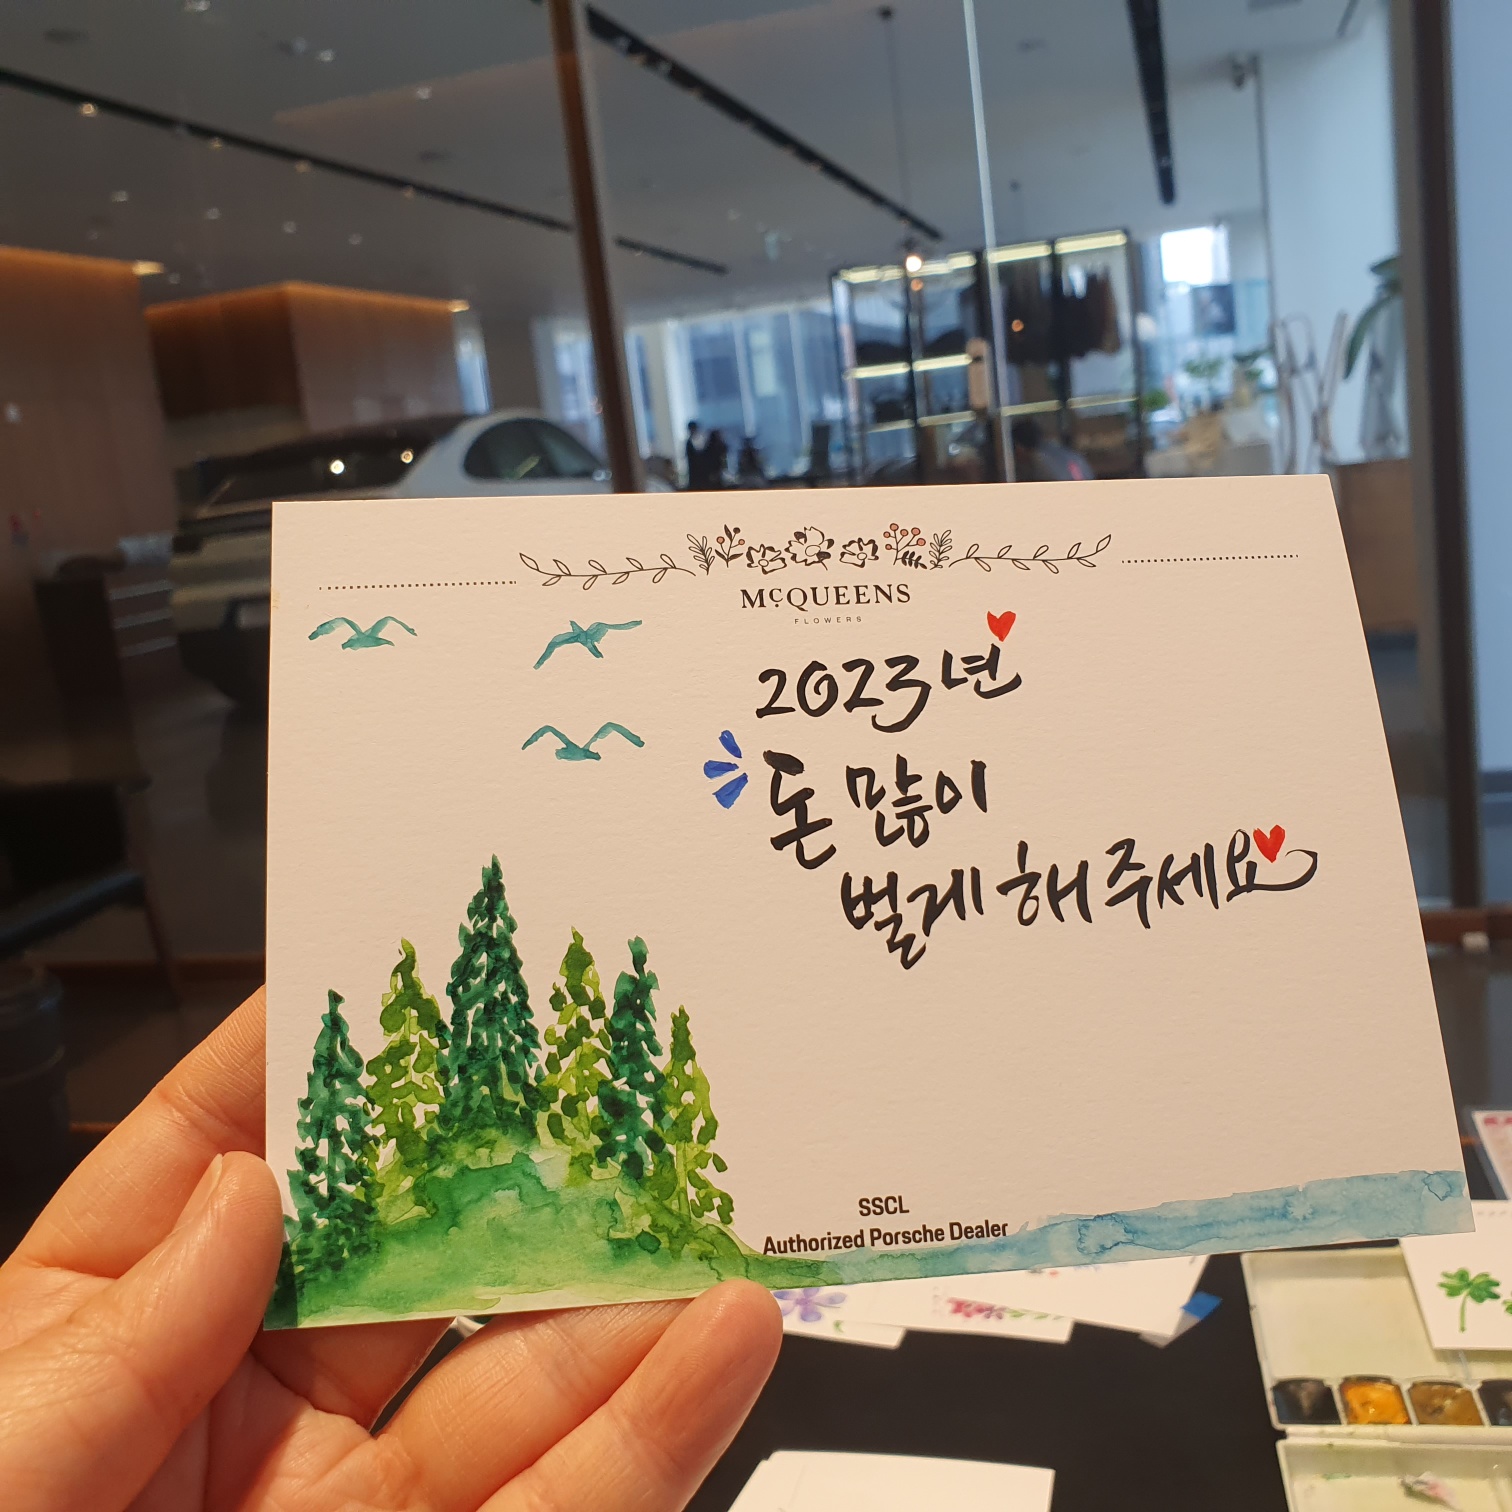 McQUEENS
FLOWERS
2023년
돈 많이
벌게 해 주세요
SSCL
Authorized Porsche Dealer